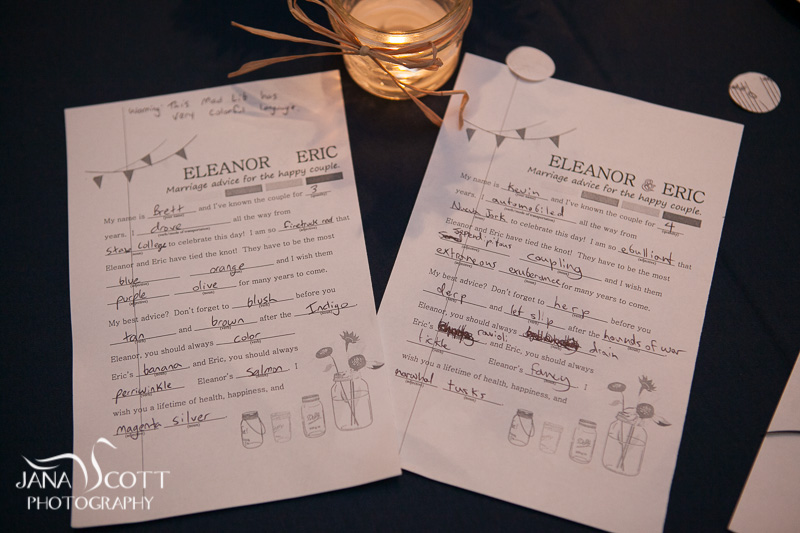 Warning: This Mad Lib has
very colorful language.
ELEANOR ERIC
Marriage advice for the happy couple.
My name is Brett and I've known the couple for 3
years. I drove all the way from
State College to celebrate this day! I am so firetruck red that
Eleanor and Eric have tied the knot! They have to be the most
blue orange and I wish them
purple olive for many years to come.
My best advice? Don't forget to blush before you
tan and brown after the Indigo.
Eleanor, you should always color
Eric's banana and Eric, you should always
periwinkle Eleanor's Salmon. I
wish you a lifetime of health, happiness, and
magenta silver
ELEANOR & ERIC
Marriage advice for the happy couple.
My name is Kevin and I've known the couple for 4
years. I automobiled all the way from
New York, to celebrate this day! I am so ebullient that
Eleanor and Eric have tied the knot! They have to be the most
coupling and I wish them
extraneous exuberance for many years to come.
My best advice? Don't forget to herp before you
derp and let slip after the hounds of war
Eleanor, you should always drain
Eric's ravioli and Eric, you should always
tickle Eleanor's fancy. I
wish you a lifetime of health, happiness, and
narwhal tusks.
JANA SCOTT
PHOTOGRAPHY